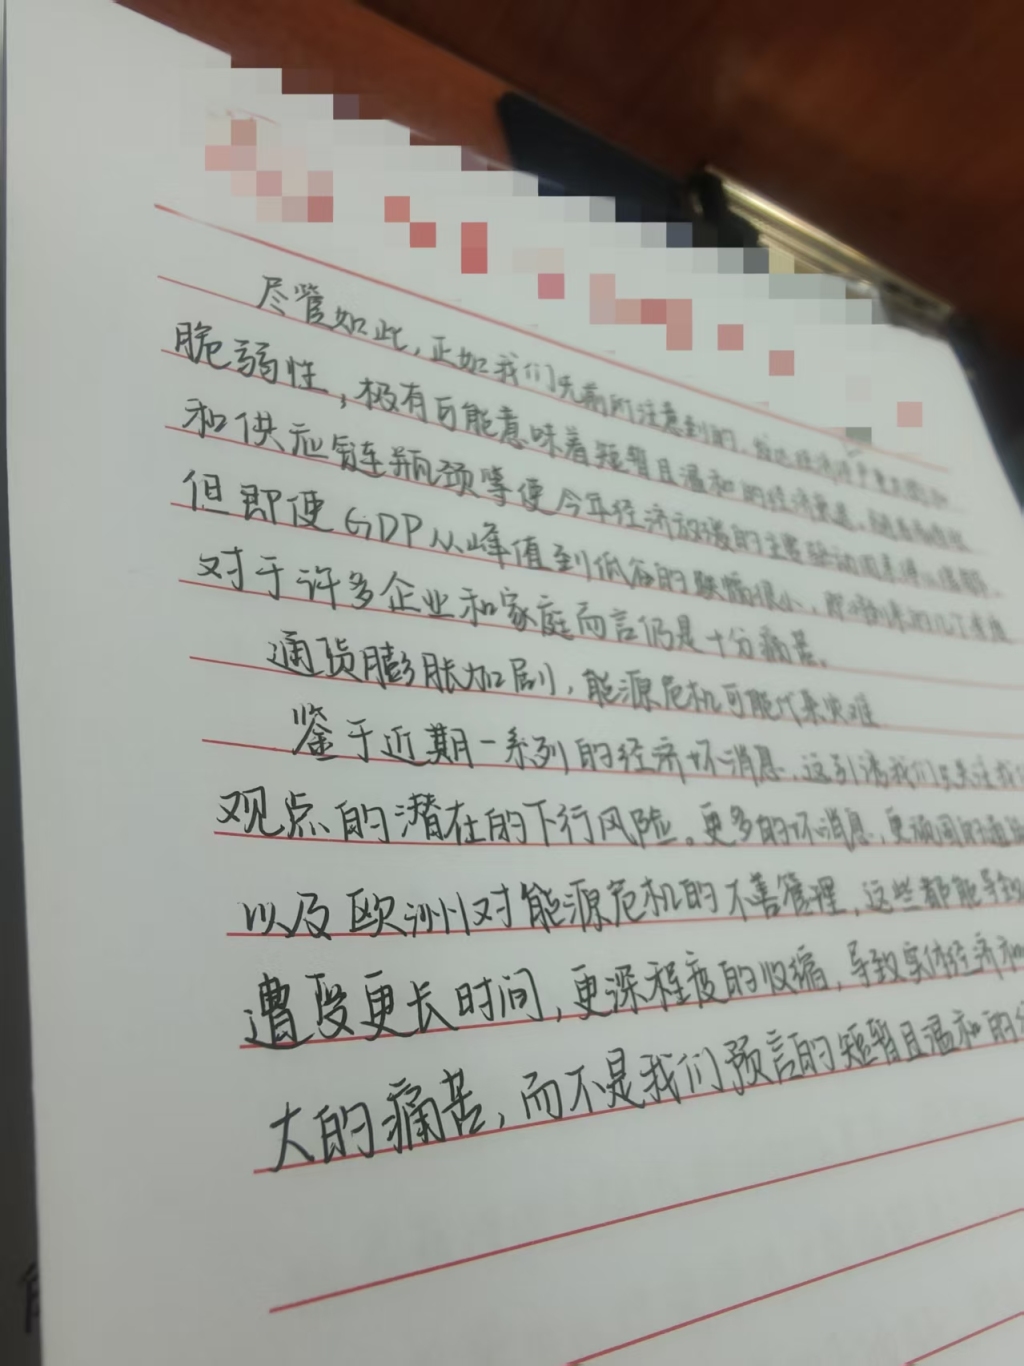 尽管如此,正如我们先前所注意到的,发达经济体
脆弱性,极有可能意味着短暂且温和的经济衰退,
和供应链瓶颈等使今年经济放缓的主要驱动因素得以缓解,
但即使GDP从峰值到低谷的跌幅很小,即将到来的几个季度
对于许多企业和家庭而言仍是十分痛苦。
通货膨胀加剧,能源危机可能代来灾难
鉴于近期一系列的经济坏消息,这引诱我们去关注我们
观点的潜在的下行风险。更多的坏消息,更顽固的通胀
以及欧洲对能源危机的不善管理,这些都能导致
遭受更长时间,更深程度的收缩,导致实体经济和
大的痛苦,而不是我们预言的短暂且温和的